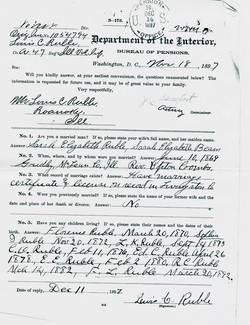 3-173.
Department of the Interior,
BUREAU OF PENSIONS,
Washington, D. C., Nov 18, 1897
Will you kindly answer, at your earliest convenience, the questions enumerated below? The information is
requested for future use, and it may be of great value to your family.
Very respectfully,
Mr Lewis C Ruble
Roanoke
Ill
Acting Commissioner.
No. 1. Are you a married man? If so, please state your wife's full name, and her maiden name.
Answer: Sarah Elizabeth Ruble, Sarah Elizabeth Bean
No. 2. When, where, and by whom were you married? Answer: June 10, 1869
No. 3. What record of marriage exists? Answer: Have marriage
certificate & license
No. 4. Were you previously married? If so, please state the name of your former wife and the
date and place of her death or divorce. Answer: No
No. 5. Have you any children living? If so, please state their names and the dates of their
birth. Answer: Florence Ruble, March 20, 1870,
Ruble Nov 20, 1872, L. K. Ruble, Sept 14, 1873
C. W. Ruble, Feb 11, 1876
1878, E. E Ruble, Feb 2, 1880, R. C Ruble
Mch 14, 1882, F. L. Ruble, March 20, 1892
Date of reply, Dec 11, 1897
Lewis C. Ruble